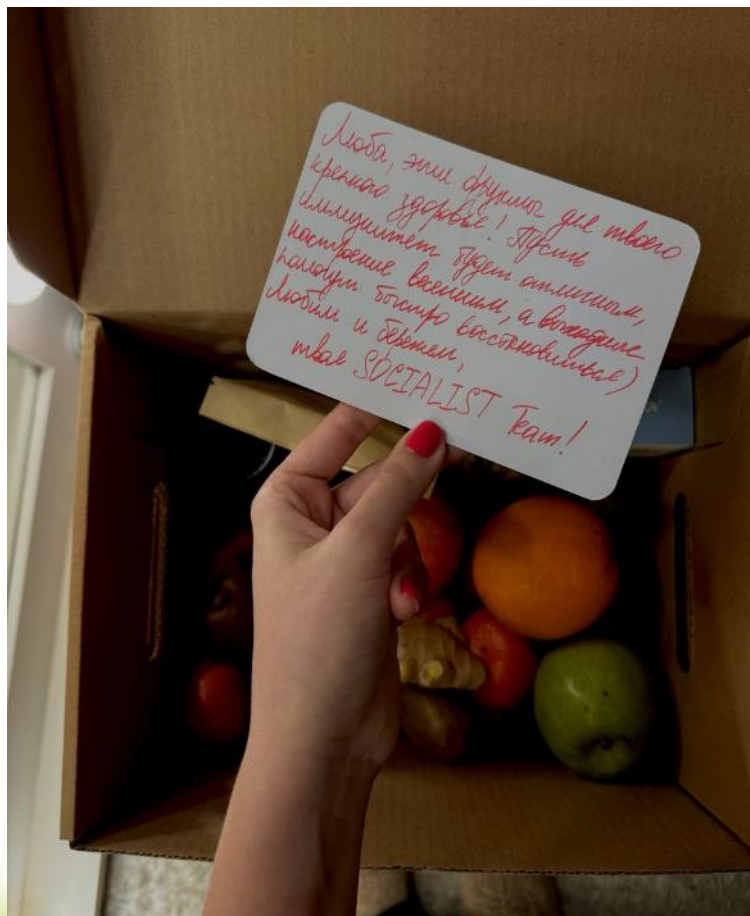 Люба, эти фрукты для твоего
крепкого здоровья! Пусть
иммунитет будет отличным,
настроение весенним, а выходные
помогут быстро восстановиться)
Любим и бережем,
твоя SOCIALIST Team!